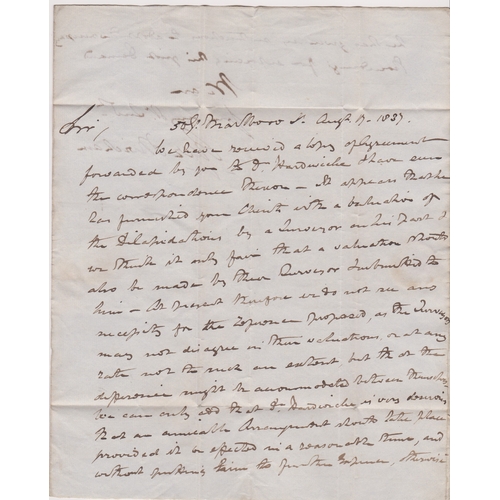 50 Gt Marlboro St. Augt 17. 1837.
Sir,
We have received a Copy of Agreement
forwarded by you to Dr Hardwicke & have seen
the correspondence thereon – It appears that he
has furnished your Clients with a valuation of
the Dilapidations by a Surveyor on his part &
we think it only fair that a valuation should
also be made by their Surveyor & submitted to
him – At present therefore we do not see any
necessity for the proposed, as the Surveyors
may not disagree in their valuations or at any
rate not to such an extent but that the
difference might be accommodated between themselves
We can only add that Dr Hardwicke is very desirous
that an amicable Arrangement should take place
provided it be effected in a reasonable time, and
without putting him to further Expense, otherwise